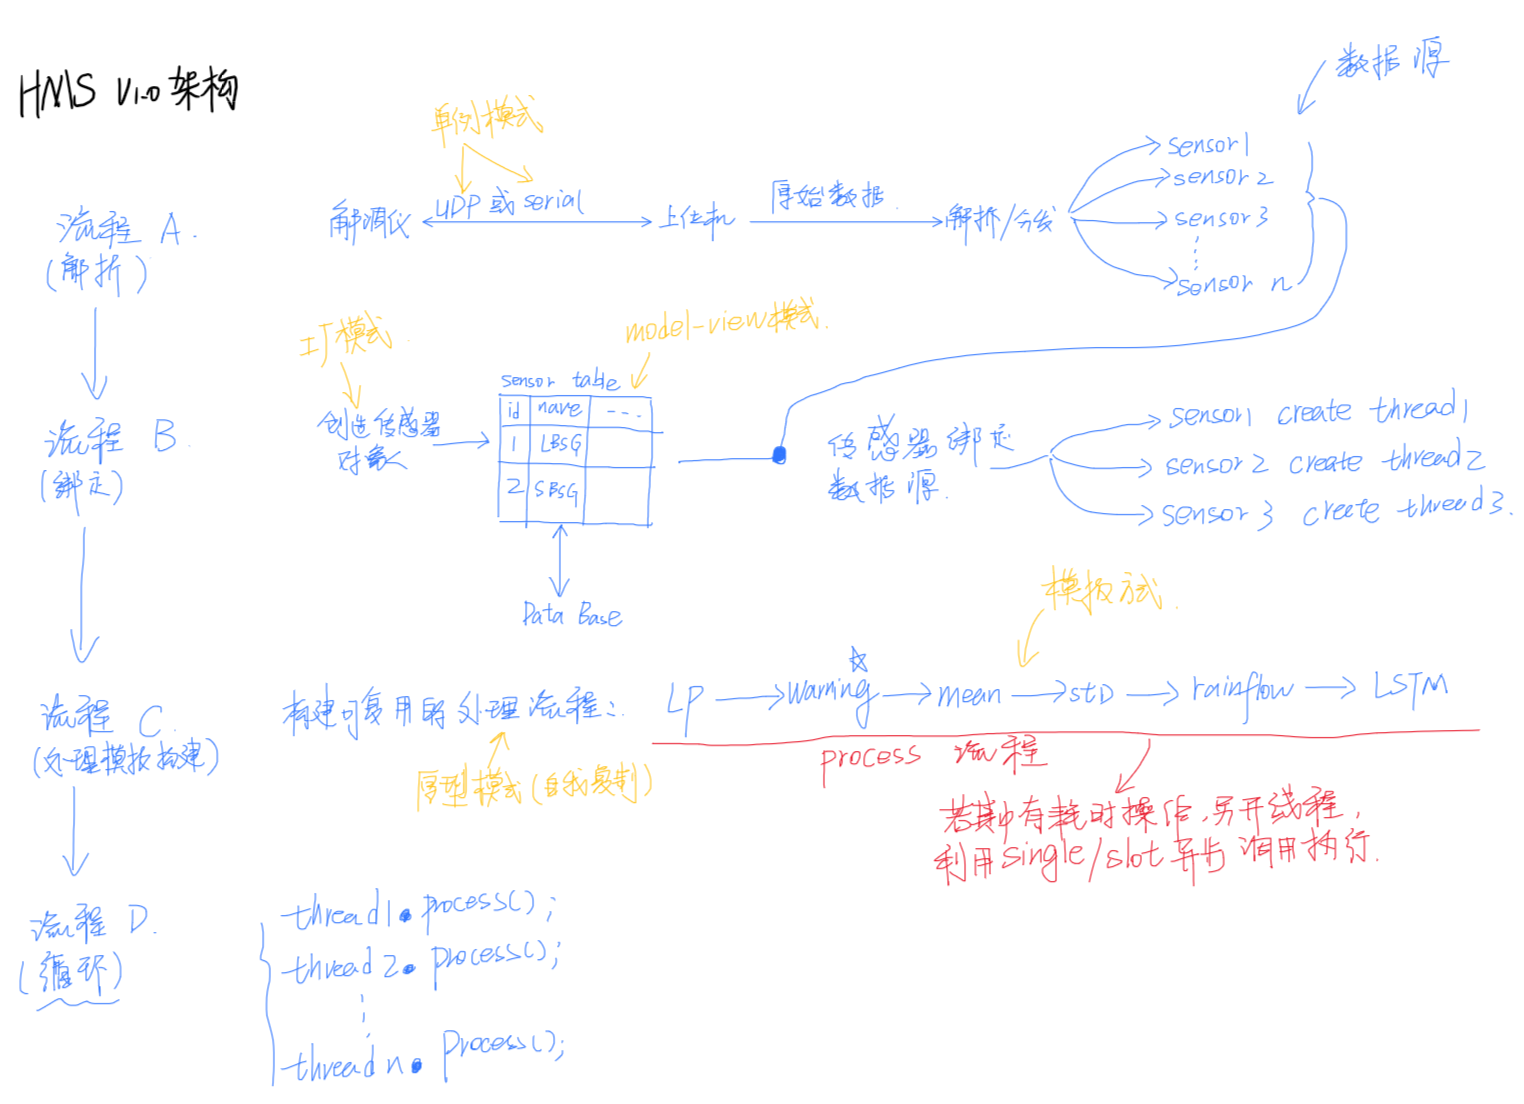 HMS V1.0架构
数据源
单例模式
流程 A.
(解析)
解调仪
UDP或serial
上位机
原始数据
解析/分线
sensor1
sensor2
sensor3
sensor n
工厂模式
model-view模式.
流程 B.
(绑定)
创造传感器
对象
sensor table
id name ---
1 LBSG
2 SBSG
Data Base
传感器绑定
数据源.
sensor1 create thread1
sensor2 create thread2
sensor3 create thread3.
模板方式.
流程 C.
(处理模板构建)
构建可复用的处理流程:
LP warning mean stD rainflow LSTM
原型模式(自我复制)
process 流程
若其中有耗时操作,另开线程,
利用single/slot异步调用执行.
流程 D.
(循环)
thread1.process();
thread2.process();
thread n.process();